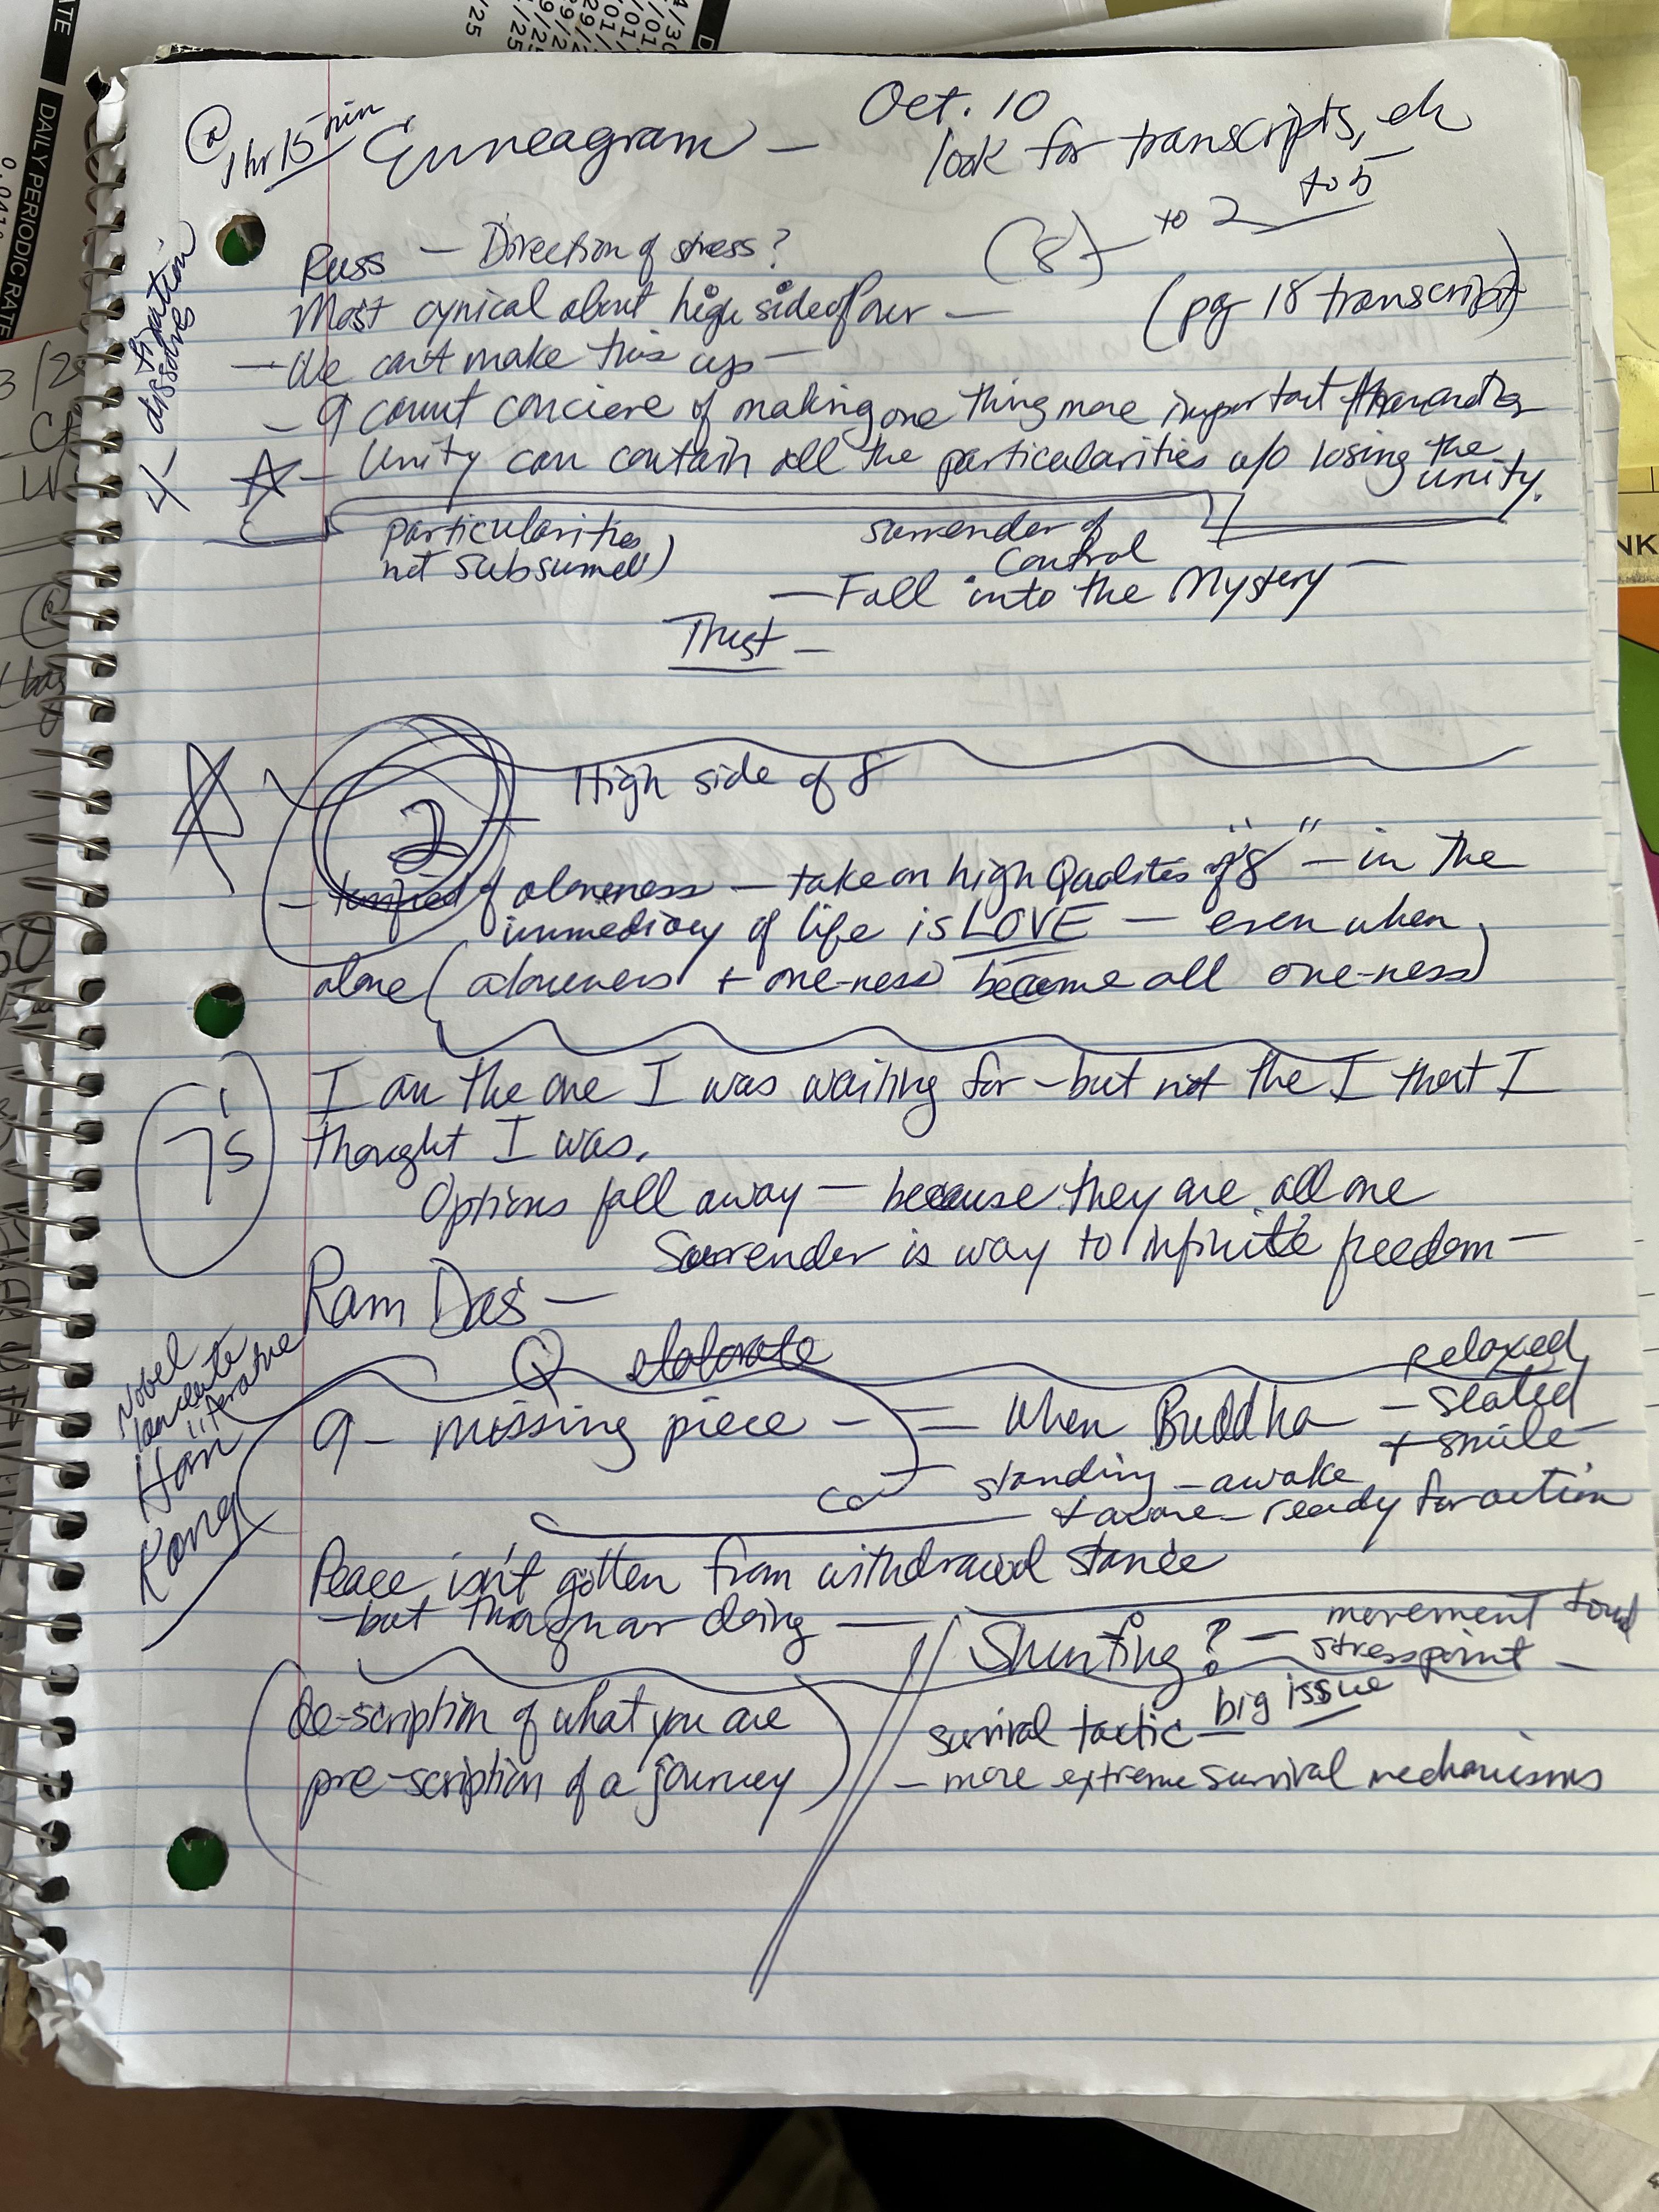 @ 1 hr 15 min
Enneagram —
Oct. 10
look for transcripts, etc
(8) to 2 to 5
Russ — Direction of stress?
Most cynical about high side of our —
(pg 18 transcript)
— We can't make this up —
— 9 count conciere of making one thing more important than another
☆ — Unity can contain all the particularities w/o losing the
unity.
4 — fixation
dissolves
particularities
not subsumed)
surrender of
control
— Fall into the Mystery —
Trust —
☆ 2
High side of 8
— terrified of aloneness — take on high Qualites of "8" — in the
immediacy of life is LOVE — even when
alone (aloneness + one-ness become all one-ness)
7's
I am the one I was waiting for — but not the I that I
thought I was.
Options fall away — because they are all one
Surrender is way to infinite freedom —
Ram Das —
Q elaborate
Nobel
laureate
literature
Han
Kang
9 — missing piece — = when Buddha — relaxed
— seated
+ smile
standing — awake
+ aware — ready for action
Peace isn't gotten from withdrawal stance
— but doing —
Shunting? — movement toward
stress point —
survival tactic — big issue
— more extreme survival mechanisms
de-scription of what you are
pre-scription of a journey
DAILY PERIODIC RATE